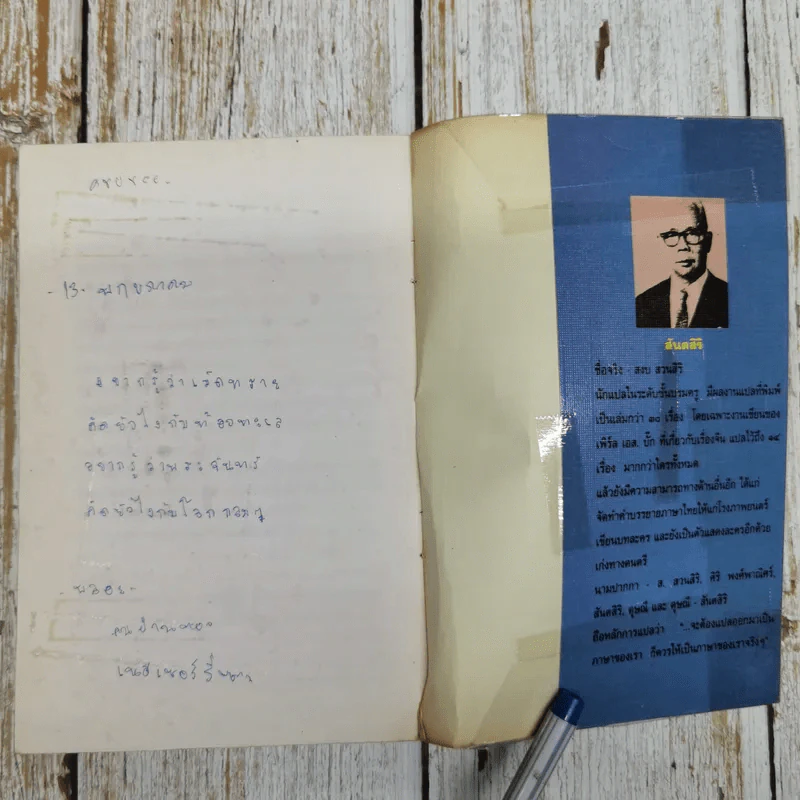 - 13. พฤษภาคม
อยากรู้ว่าเม็ดทราย
คิดยังไงกับท้องทะเล
อยากรู้ว่าพระจันทร์
คิดยังไงกับโลกกลมๆ
สันตสิริ
ชื่อจริง - สงบ สวนสิริ
นักแปลในระดับชั้นบรมครู มีผลงานแปลที่พิมพ์
เป็นเล่มกว่า ๓๐ เรื่อง โดยเฉพาะงานเขียนของ
เพิร์ล เอส. บั๊ก ที่เกี่ยวกับเรื่องจีน แปลไว้ถึง ๑๔
เรื่อง มากกว่าใครทั้งหมด
แล้วยังมีความสามารถทางด้านอื่นอีก ได้แก่
จัดทำคำบรรยายภาษาไทยให้แก่โรงภาพยนตร์
เขียนบทละคร และยังเป็นตัวแสดงละครอีกด้วย
เก่งทางดนตรี
นามปากกา - ส. สวนสิริ, สิริ พงศ์พาณิตร์,
สันตสิริ, ดุษณี และ ดุษณี - สันตสิริ
ถือหลักการแปลว่า "...จะต้องแปลออกมาเป็น
ภาษาของเรา ก็ควรให้เป็นภาษาของเราจริงๆ"